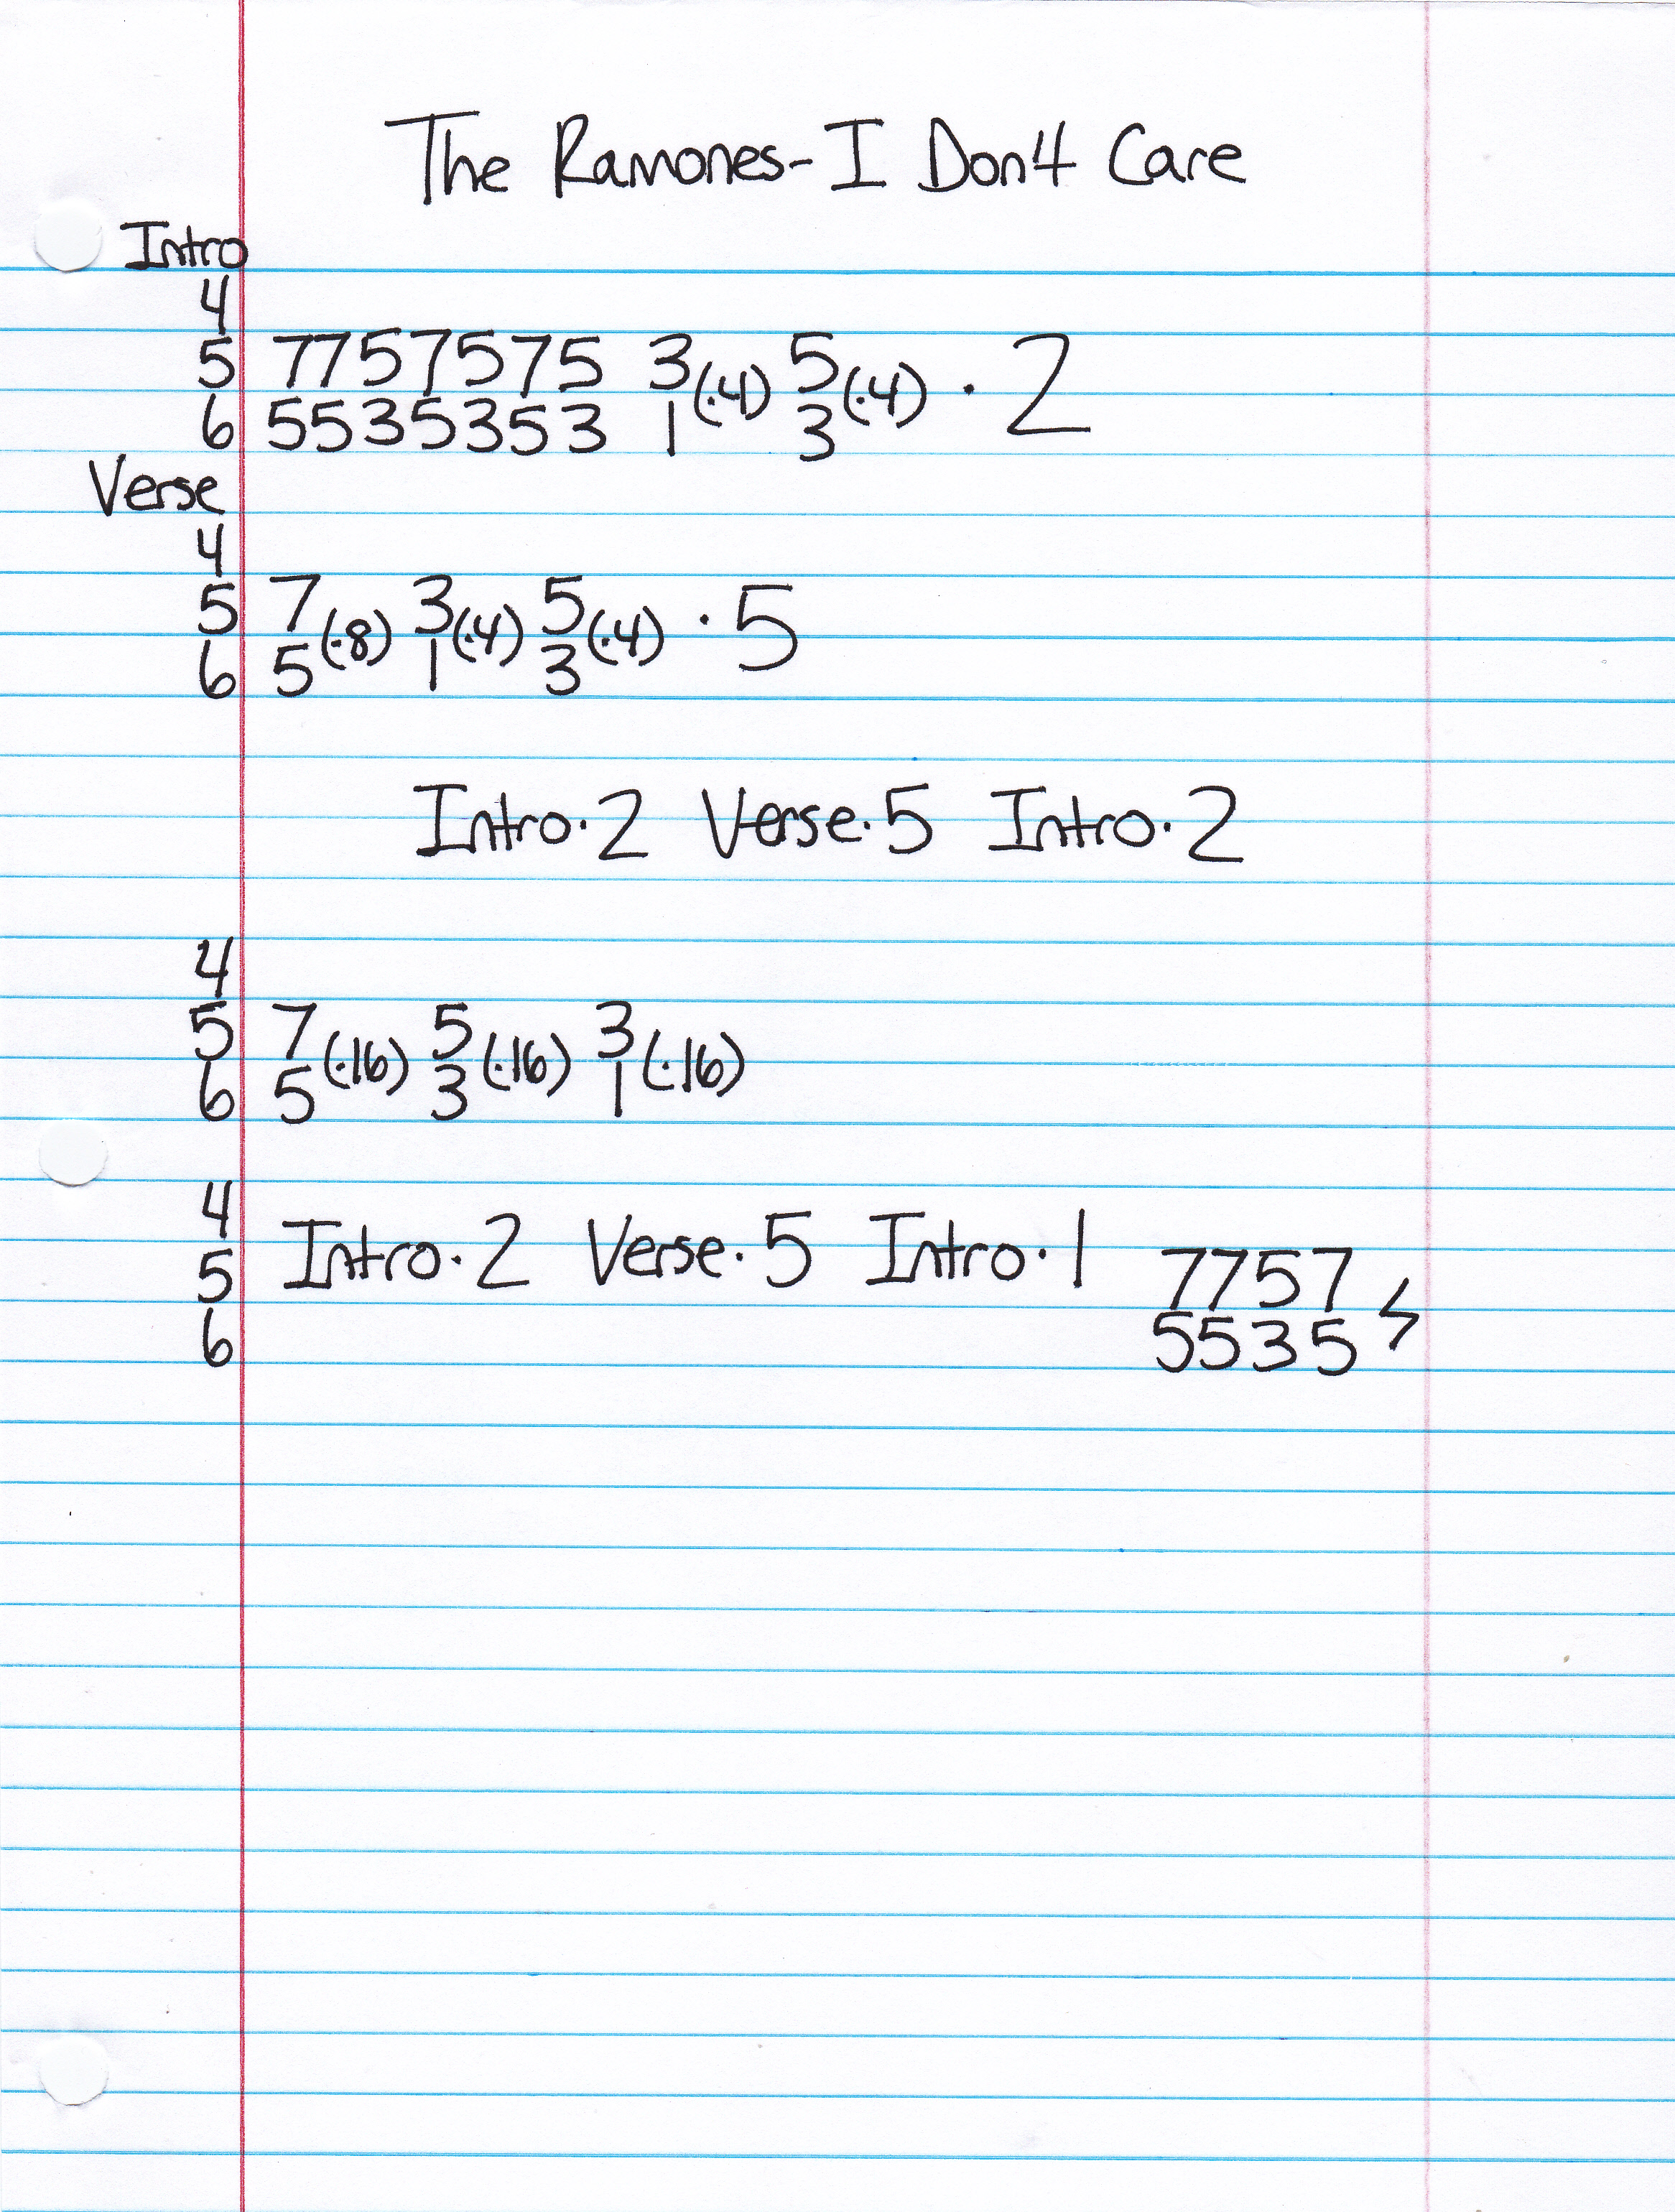 The Ramones-I Don't Care
Intro
4
5 7757575 3(·4) 5(·4) · 2
6 5535353 1 3
Verse
4
5 7(·8) 3(·4) 5(·4) · 5
6 5 1 3
Intro·2 Verse·5 Intro·2
4
5 7(·16) 5(·16) 3(·16)
6 5 3 1
4
5 Intro·2 Verse·5 Intro·1 7757
6 5535